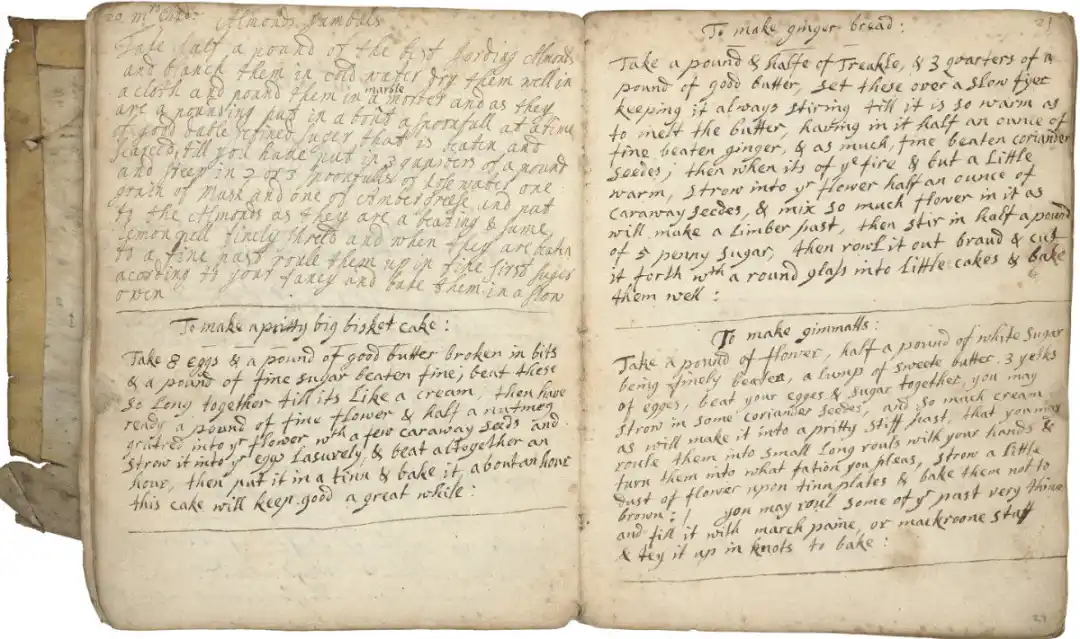 20 Mrs Almonds Jumbolls
Take half a pound of the best Jording Almonds
and blanch them in cold water dry them well in
a cloth and pound them in a marble morter and as they
are a pounding put in about a spoonfull at a time
of good duble refined suger that is beaten and
searced, till you have put in 3 quarters of a pound
and steep in 2 or 3 spoonfulls of Rose water one
grain of Musk and one of Ambergreese and put
to the Almonds as they are a beating & some
lemon pell finely shred and when they are beaten
to a fine past roule them up in fine sugar
acording to your fancy and bake them in a slow
oven
To make a pritty big bisket cake:
Take 8 eggs & a pound of good butter broken in bits
& a pound of fine sugar beaten fine, beat these
so Long together till its Like a cream, then have
ready a pound of fine flower & half a nutmeg
grated into yr flower wth a few caraway seeds and
strow it into yr eggs Lasurely, & beat altogether an
hour, then put it in a tinn & bake it about an hour
this cake will keep good a great while:
21
To make ginger bread:
Take a pound & halfe of Treakle, & 3 quarters of a
pound of good butter, set these over a slow fyer
keeping it always stiring till it is so warm as
to melt the butter, having in it half an ounce of
fine beaten ginger, & as much, fine beaten coriander
seedes; then when its of ye fire & but a Little
warm, strow into yr flower half an ounce of
caraway seedes, & mix so much flower in it as
will make a Limber past, then stir in half a pound
of 5 penny sugar, then rowl it out broad & cut
it forth wth a round glass into Little cakes & bake
them well:
To make gimmalls:
Take a pound of flower, half a pound of white sugar
being finely beaten, a lump of sweete butter, 3 yelks
of egges, beat your egges & sugar together, you may
strow in some coriander seedes, and so much cream
as will make it into a pritty stiff past, that you may
roule them into small Long rouls with your hands &
turn them into what fation you pleas, strow a little
dust of flower upon tinn plates & bake them not to
brown: you may roul some of yr past very thinn
and fill it with march paine, or mackroone stuff
& tey it up in knots to bake:
21